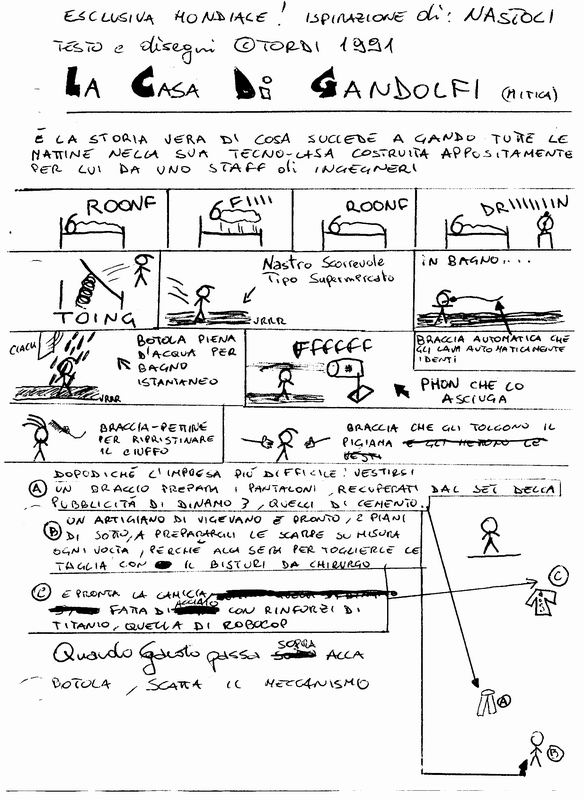 ESCLUSIVA MONDIALE! ISPIRAZIONE di: NASTOLI
TESTO e disegni © TORDI 1991
LA CASA Di GANDOLFI (MITICA)
È LA STORIA VERA DI COSA SUCCEDE A GANDO TUTTE LE
MATTINE NELLA SUA TECNO-CASA COSTRUITA APPOSITAMENTE
PER LUI DA UNO STAFF di INGEGNERI
ROONF
FIIII
ROONF
DRIIIIIIIN
TOING
Nastro Scorrevole
Tipo Supermercato
VRRR
iN BAGNO....
BRACCIA AUTOMATICA CHE
GLI LAVA AUTOMATICAMENTE
I DENTI
CIACK
BOTOLA PIENA
D'ACQUA PER
BAGNO
ISTANTANEO
VRRR
FFFFFF
PHON CHE LO
ASCIUGA
BRACCIA-PETTINE
PER RIPRISTINARE
IL CIUFFO
BRACCIA CHE GLI TOLGONO IL
PIGIAMA E GLI METTONO LE
VESTI
DOPODICHÉ L'IMPRESA PIÙ DIFFICILE: VESTIRSI
A UN BRACCIO PREPARA I PANTALONI, RECUPERATI DAL SET DELLA
PUBBLICITÀ DI DINAMO 3, QUELLI DI CEMENTO..
B UN ARTIGIANO DI VIGEVANO È PRONTO, 2 PIANI
DI SOTTO, A PREPARARGLI LE SCARPE SU MISURA
OGNI VOLTA, PERCHÉ ALLA SERA PER TOGLIERLE LE
TAGLIA CON IL BISTURI DA CHIRURGO
C È PRONTA LA CAMICIA,
FATTA DI ACCIAIO CON RINFORZI DI
TITANIO, QUELLA DI ROBOCOP
Quando passa SOPRA ALLA
BOTOLA, SCATTA IL MECCANISMO
C
A
B